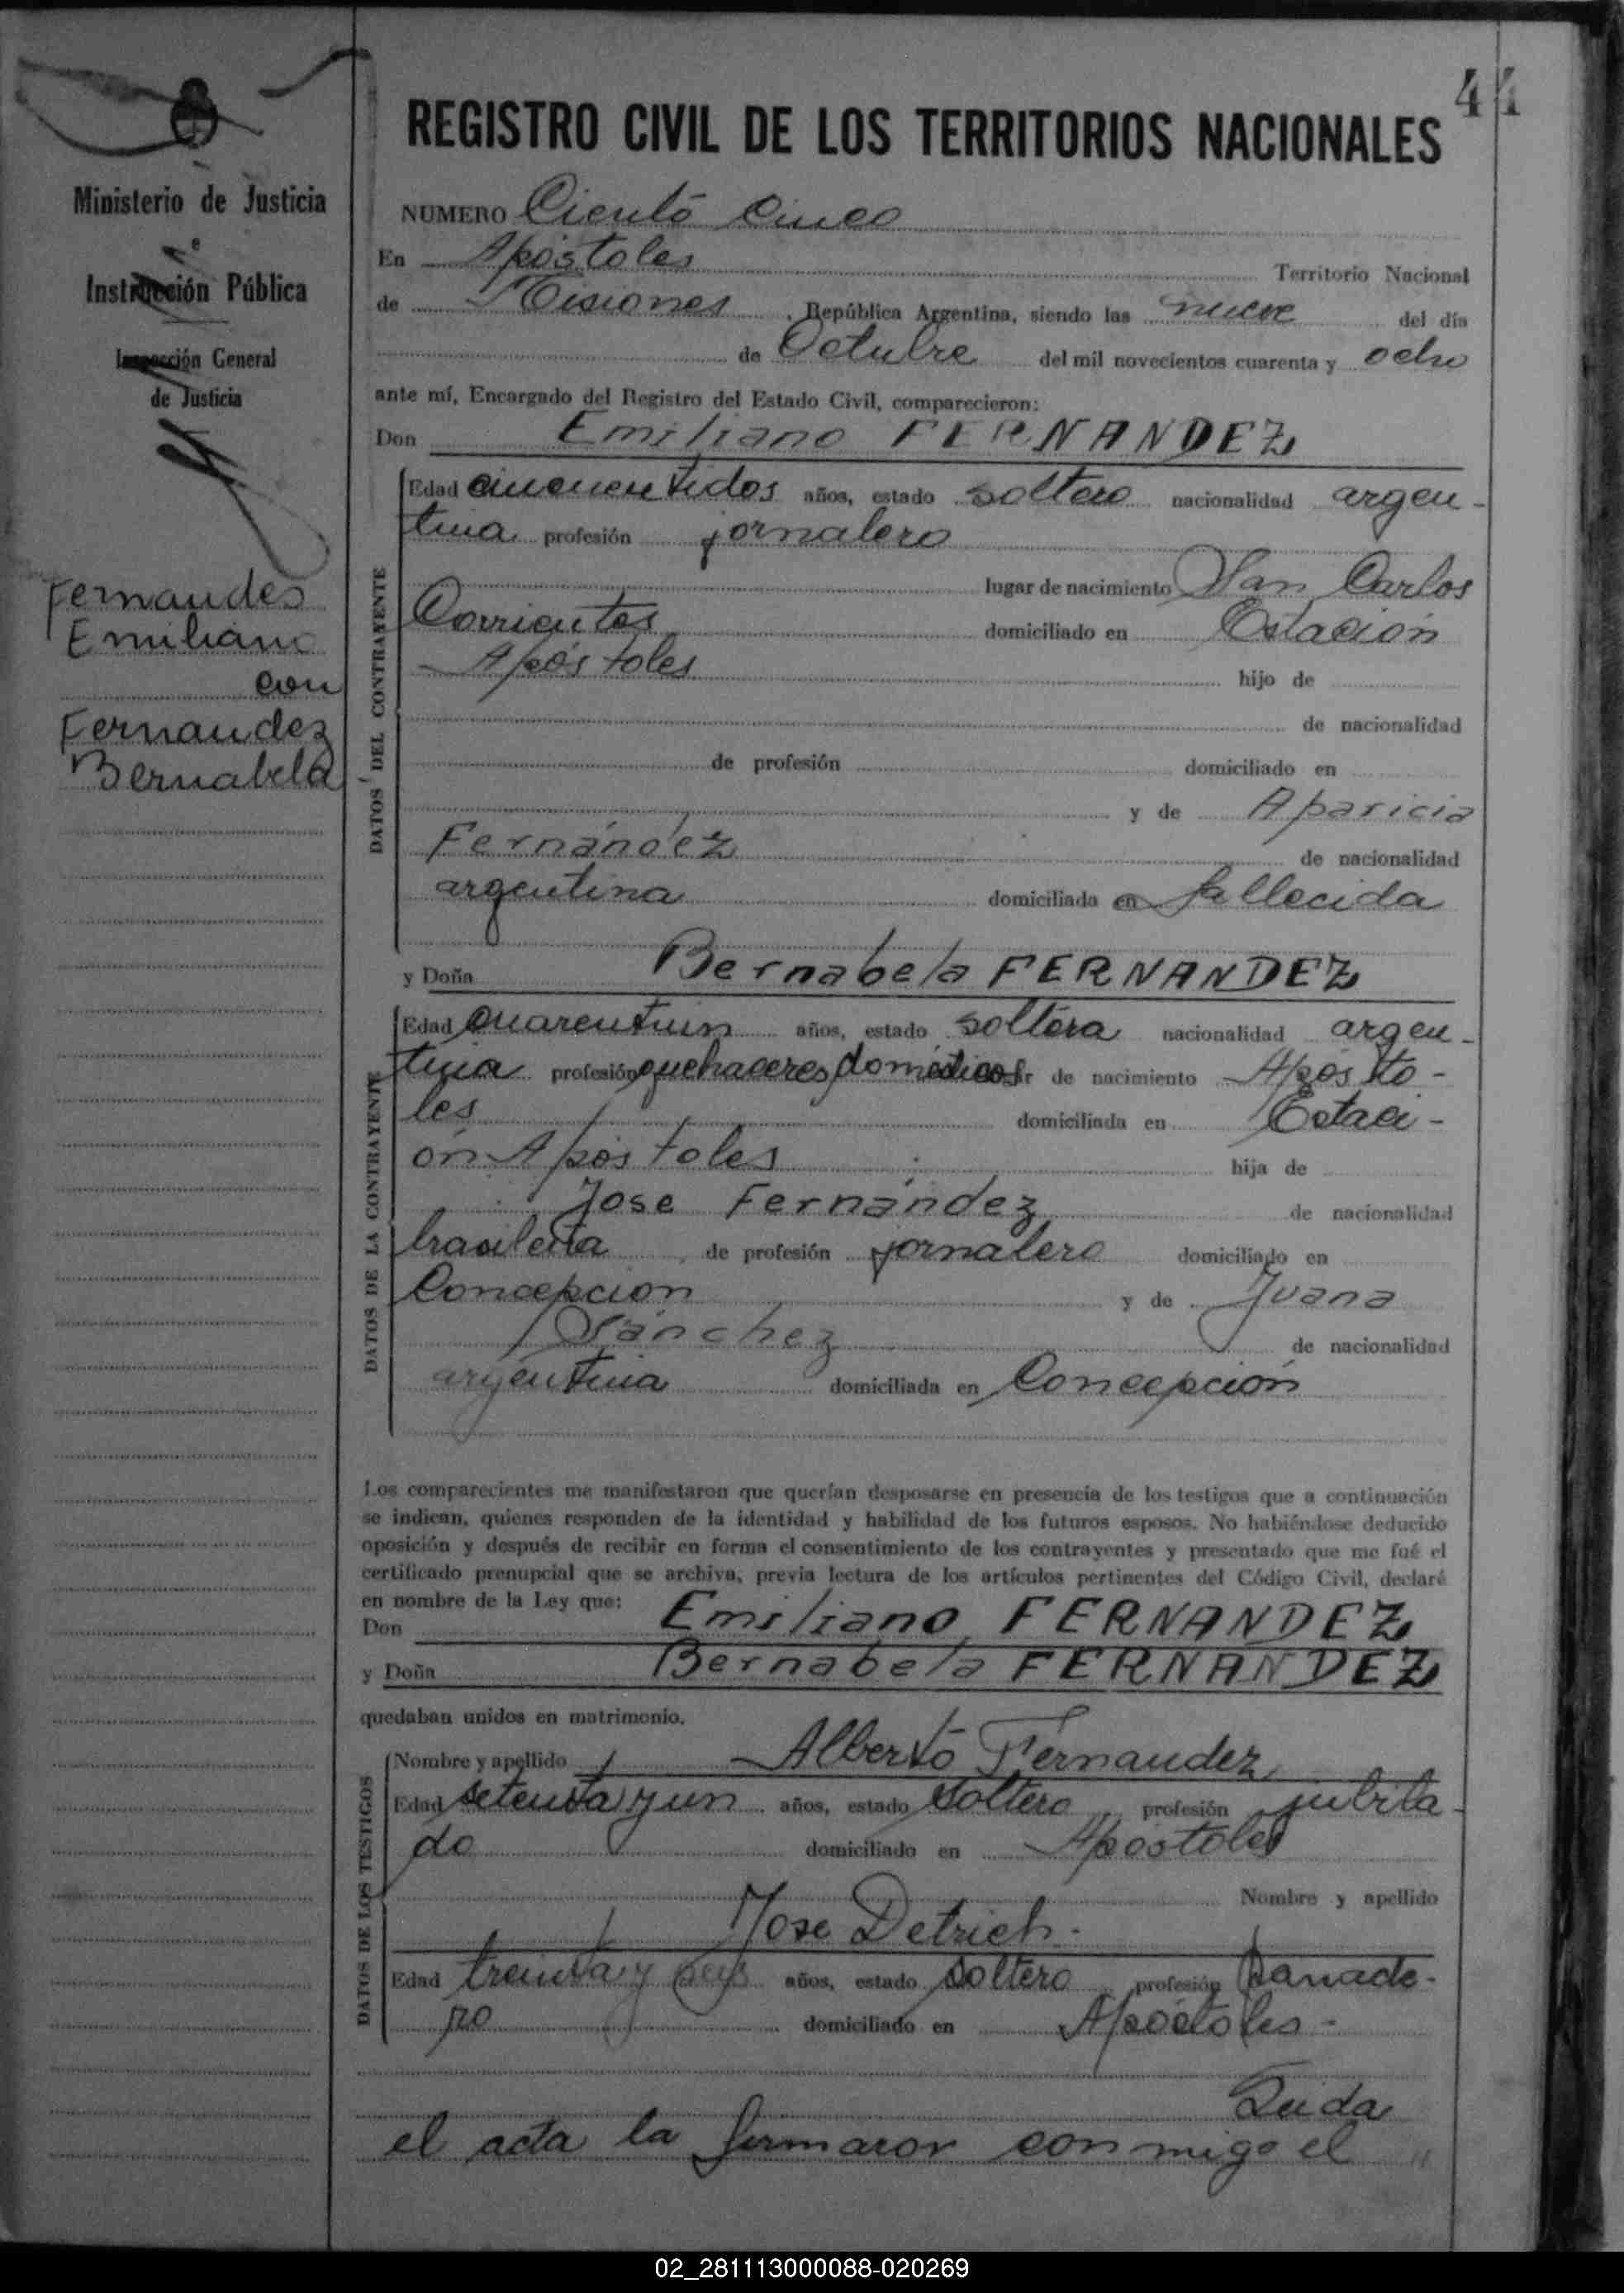 44
REGISTRO CIVIL DE LOS TERRITORIOS NACIONALES
Ministerio de Justicia
e
Instrucción Pública
Inspección General
de Justicia
Fernandes
Emiliano
con
Fernandez
Bernabela
NUMERO Ciento Cinco
En Apóstoles Territorio Nacional
de Misiones, República Argentina, siendo las nueve del día
de Octubre del mil novecientos cuarenta y ocho
ante mí, Encargado del Registro del Estado Civil, comparecieron:
Don Emiliano FERNANDEZ
DATOS DEL CONTRAYENTE
Edad cincuentidos años, estado soltero nacionalidad argen-
tina profesión jornalero
lugar de nacimiento San Carlos
Corrientes domiciliado en Estación
Apóstoles hijo de
de nacionalidad
de profesión domiciliado en
y de Aparicia
Fernández de nacionalidad
argentina domiciliada en fallecida
y Doña Bernabela FERNANDEZ
DATOS DE LA CONTRAYENTE
Edad cuarentiún años, estado soltera nacionalidad argen-
tina profesión quehaceres domésticos de nacimiento Apósto-
les domiciliada en Estaci-
ón Apóstoles hija de
Jose Fernández de nacionalidad
brasileña de profesión jornalero domiciliado en
Concepción y de Juana
Sánchez de nacionalidad
argentina domiciliada en Concepción
Los comparecientes me manifestaron que querían desposarse en presencia de los testigos que a continuación
se indican, quienes responden de la identidad y habilidad de los futuros esposos. No habiéndose deducido
oposición y después de recibir en forma el consentimiento de los contrayentes y presentado que me fué el
certificado prenupcial que se archiva, previa lectura de los artículos pertinentes del Código Civil, declaré
en nombre de la Ley que:
Don Emiliano FERNANDEZ
y Doña Bernabela FERNANDEZ
quedaban unidos en matrimonio.
DATOS DE LOS TESTIGOS
Nombre y apellido Alberto Fernandez
Edad setenta y un años, estado soltero profesión jubila-
do domiciliado en Apóstoles
Nombre y apellido
Jose Detrich.
Edad treinta y seis años, estado soltero profesión panade-
ro domiciliado en Apóstoles-
Leida
el acta la firmaron conmigo el
02_281113000088-020269